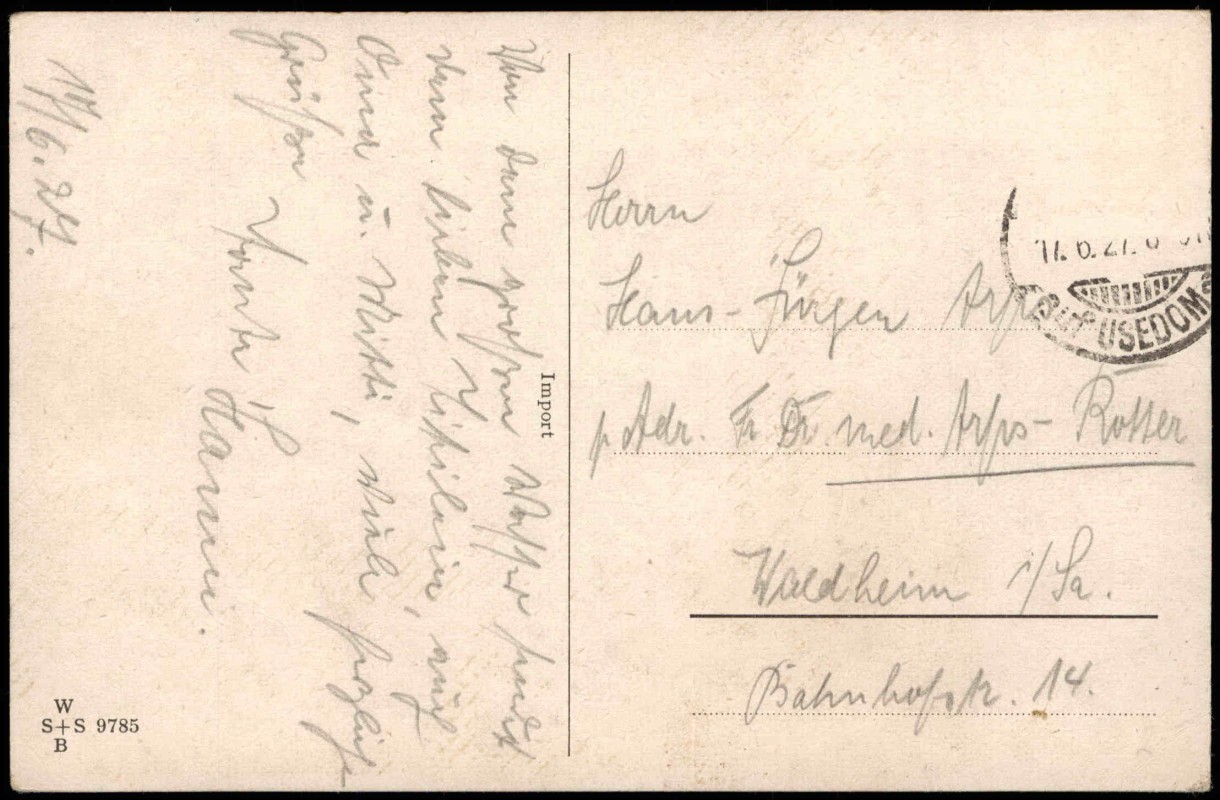 Von dem großen Wasser sendet
dem lieben auch
Oma u. Mutti, viele herzliche
Grüße Tante
17/6.27.
Import
W
S+S 9785
B
Herrn
Hans-Jürgen Arps
p. Adr. Fr. Dr. med. Arps-Rotter
Waldheim i/Sa.
Bahnhofstr. 14.
17.6.27.
USEDOM